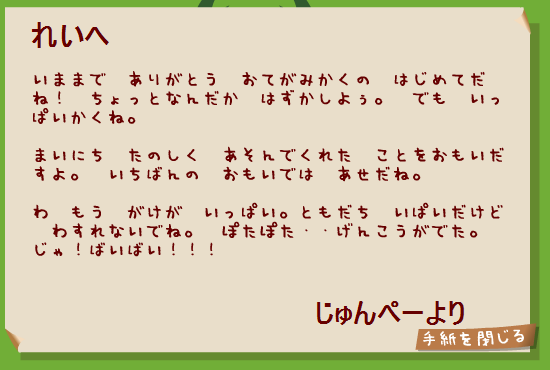 れいへ
いままで　ありがとう　おてがみかくの　はじめてだ
ね！　ちょっとなんだか　はずかしよぅ。　でも　いっ
ぱいかくね。
まいにち　たのしく　あそんでくれた　ことをおもいだ
すよ。　いちばんの　おもいでは　あせだね。
わ　もう　がけが　いっぱい。ともだち　いぱいだけど
　わすれないでね。　ぽたぽた‥げんこうがでた。
じゃ！ばいばい！！！
じゅんペーより
手紙を閉じる